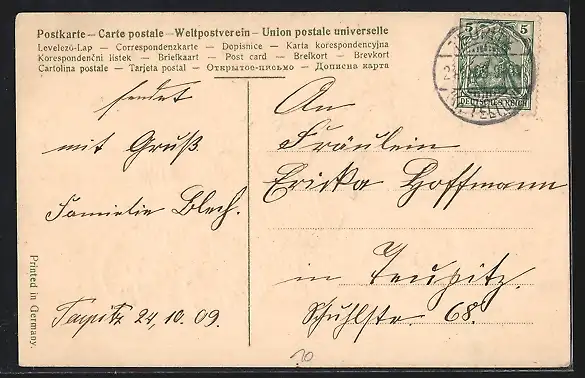 Postkarte – Carte postale – Weltpostverein – Union postale universelle
Levelező-Lap — Correspondenzkarte — Dopisnice — Karta korespondencyjna
Korespondenční lístek — Briefkaart — Post card — Brefkort — Brevkort
Cartolina postale — Tarjeta postal — Открытое-письмо — Дописна карта
5 5
DEUTSCHES REICH
sendet
mit Gruß
Familie Blech.
Teupitz 24, 10. 09.
An
Fräulein
Ericka Hoffmann
in Teupitz.
Schuhlstr. 68.
Printed in Germany.
10